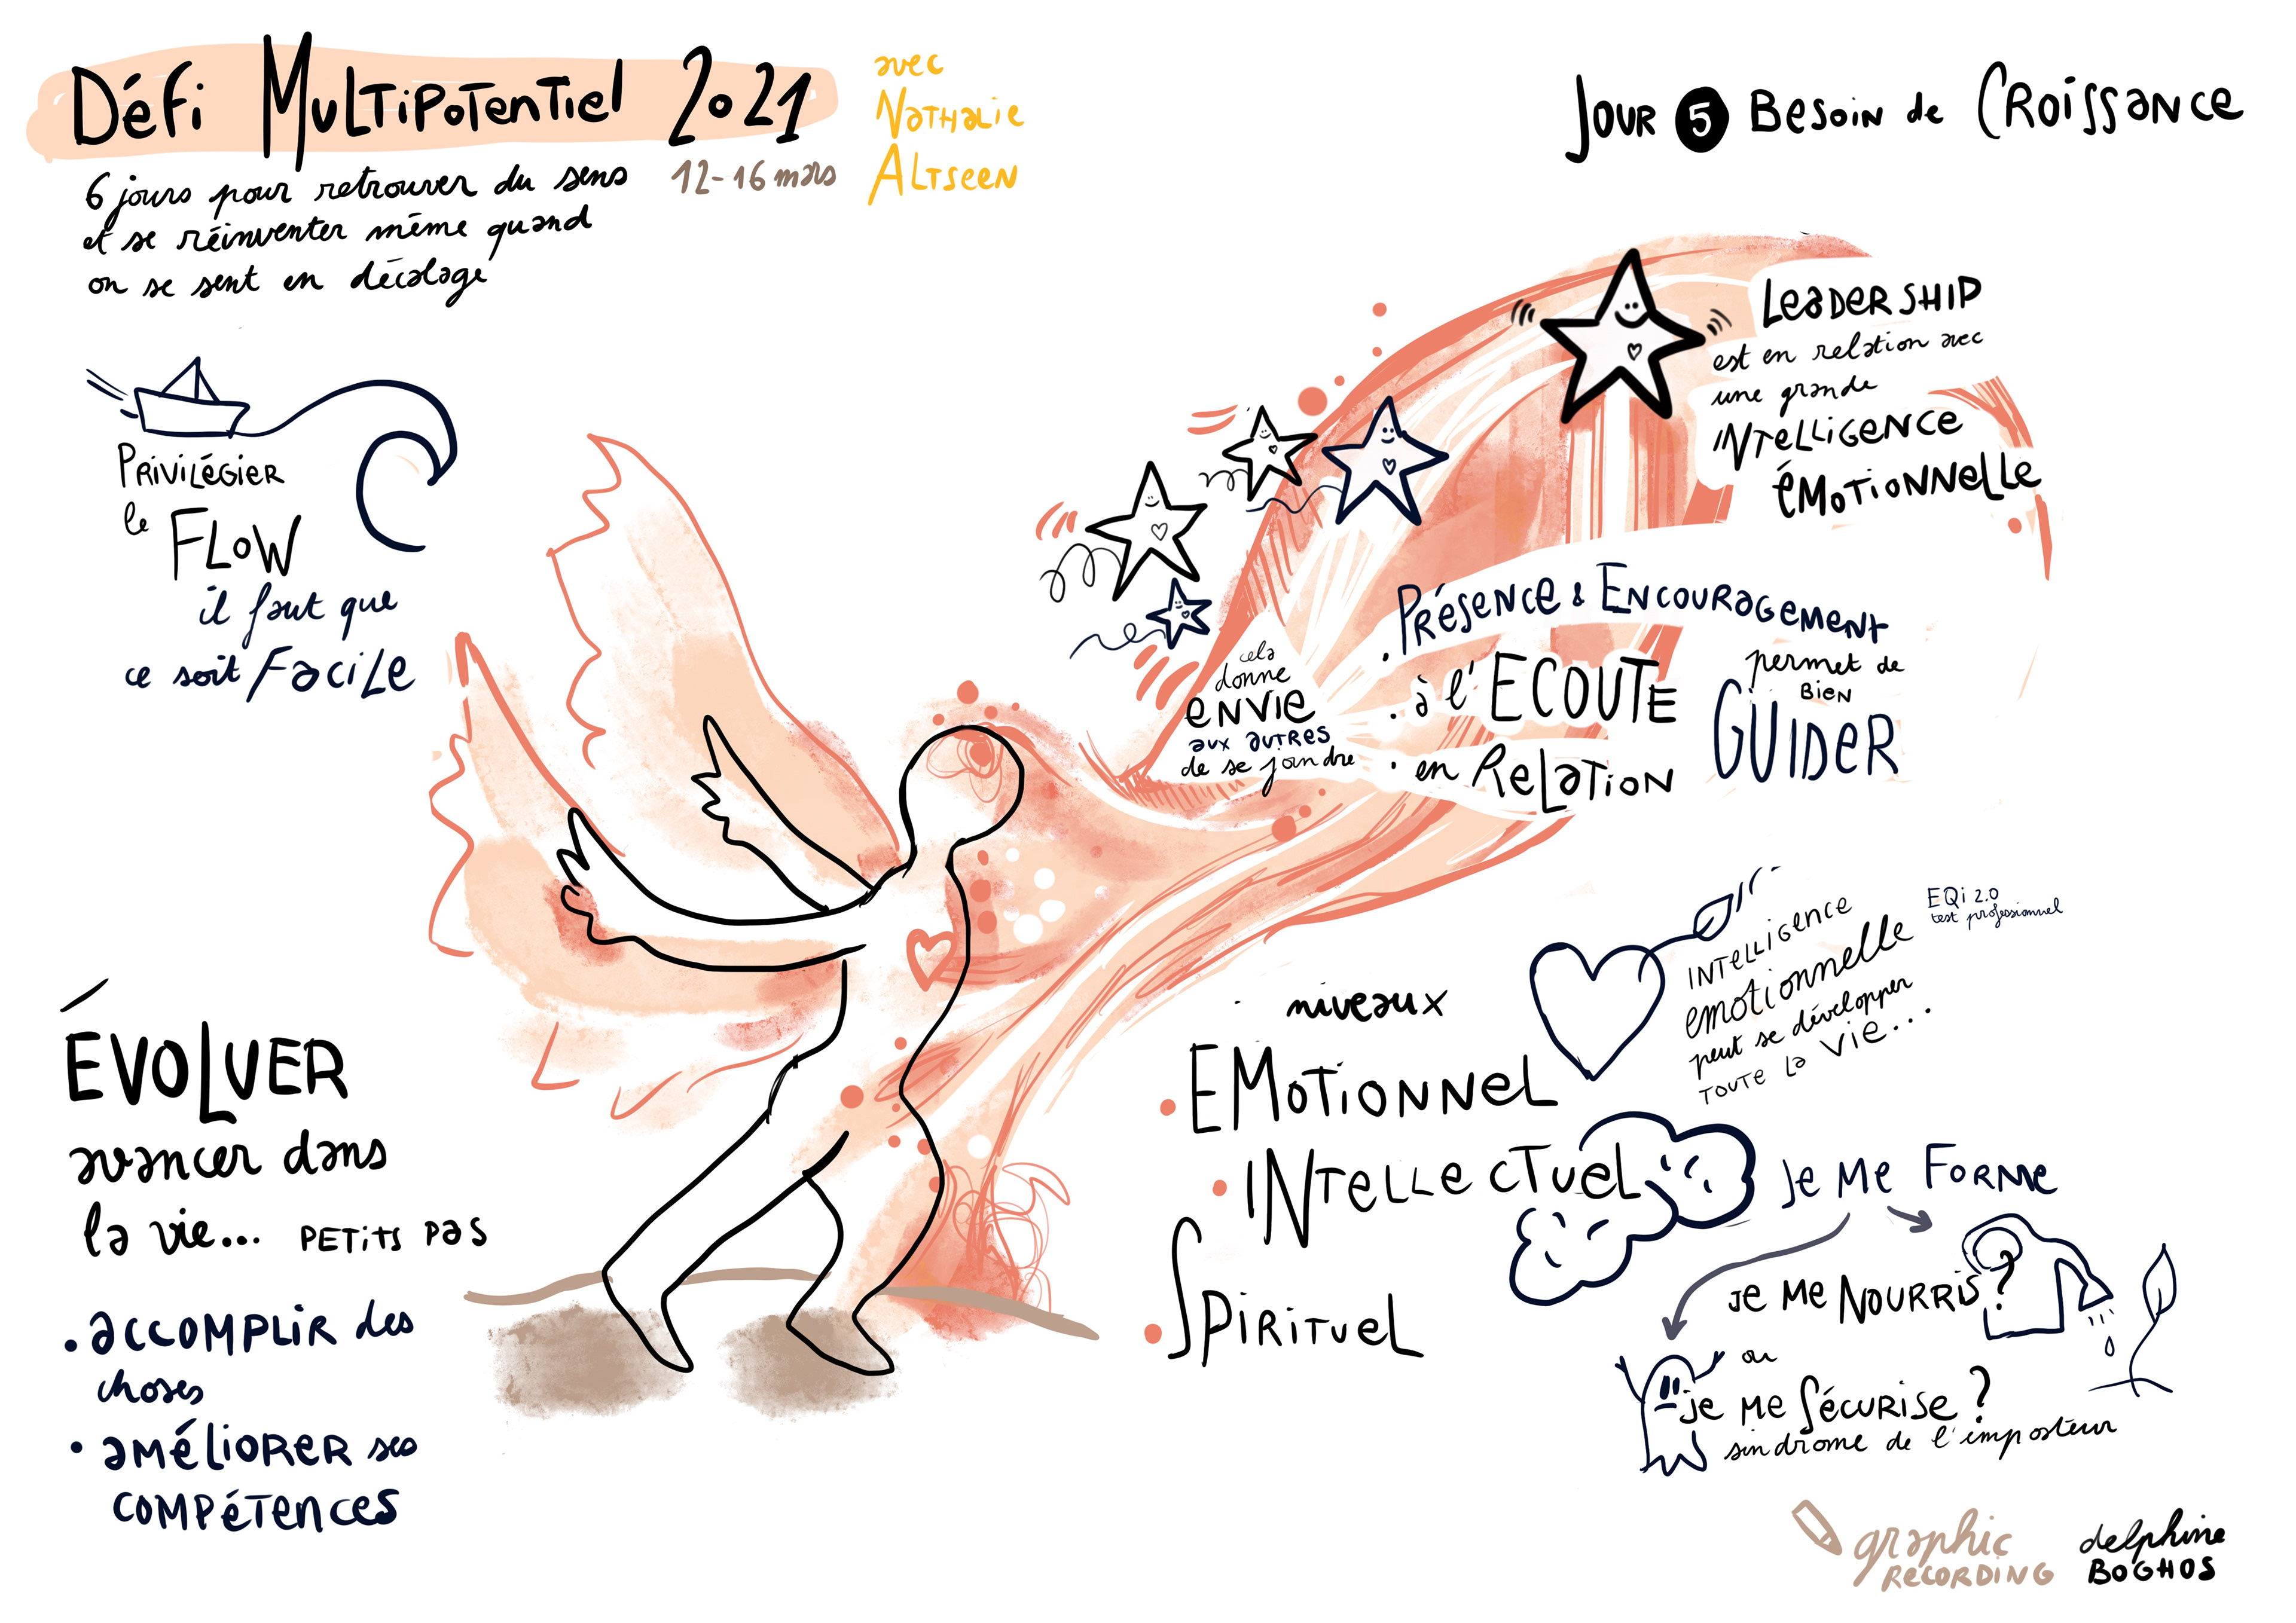 Défi Multipotentiel 2021
12-16 mars
avec
Nathalie
Altseen
6 jours pour retrouver du sens
et se réinventer même quand
on se sent en décalage
Jour 5 Besoin de Croissance
Privilégier
le
FLOW
il faut que
ce soit Facile
Leadership
est en relation avec
une grande
Intelligence
émotionnelle
Présence & Encouragement
• à l'ECOUTE
• en Relation
permet de
BIEN
GUIDER
cela
donne
envie
aux autres
de se joindre
ÉVOLUER
avancer dans
la vie... PETITS PAS
• accomplir des
choses
• améliorer ses
compétences
niveaux
• EMOTIONNEL
• INTELLECTUEL
• SPIRITUEL
Intelligence
emotionnelle
peut se développer
toute la vie...
EQi 2.0
test professionnel
Je me Forme
Je me Nourris ?
ou
je me Sécurise ?
sindrome de l'imposteur
graphic
RECORDING
delphine
BOGHOS